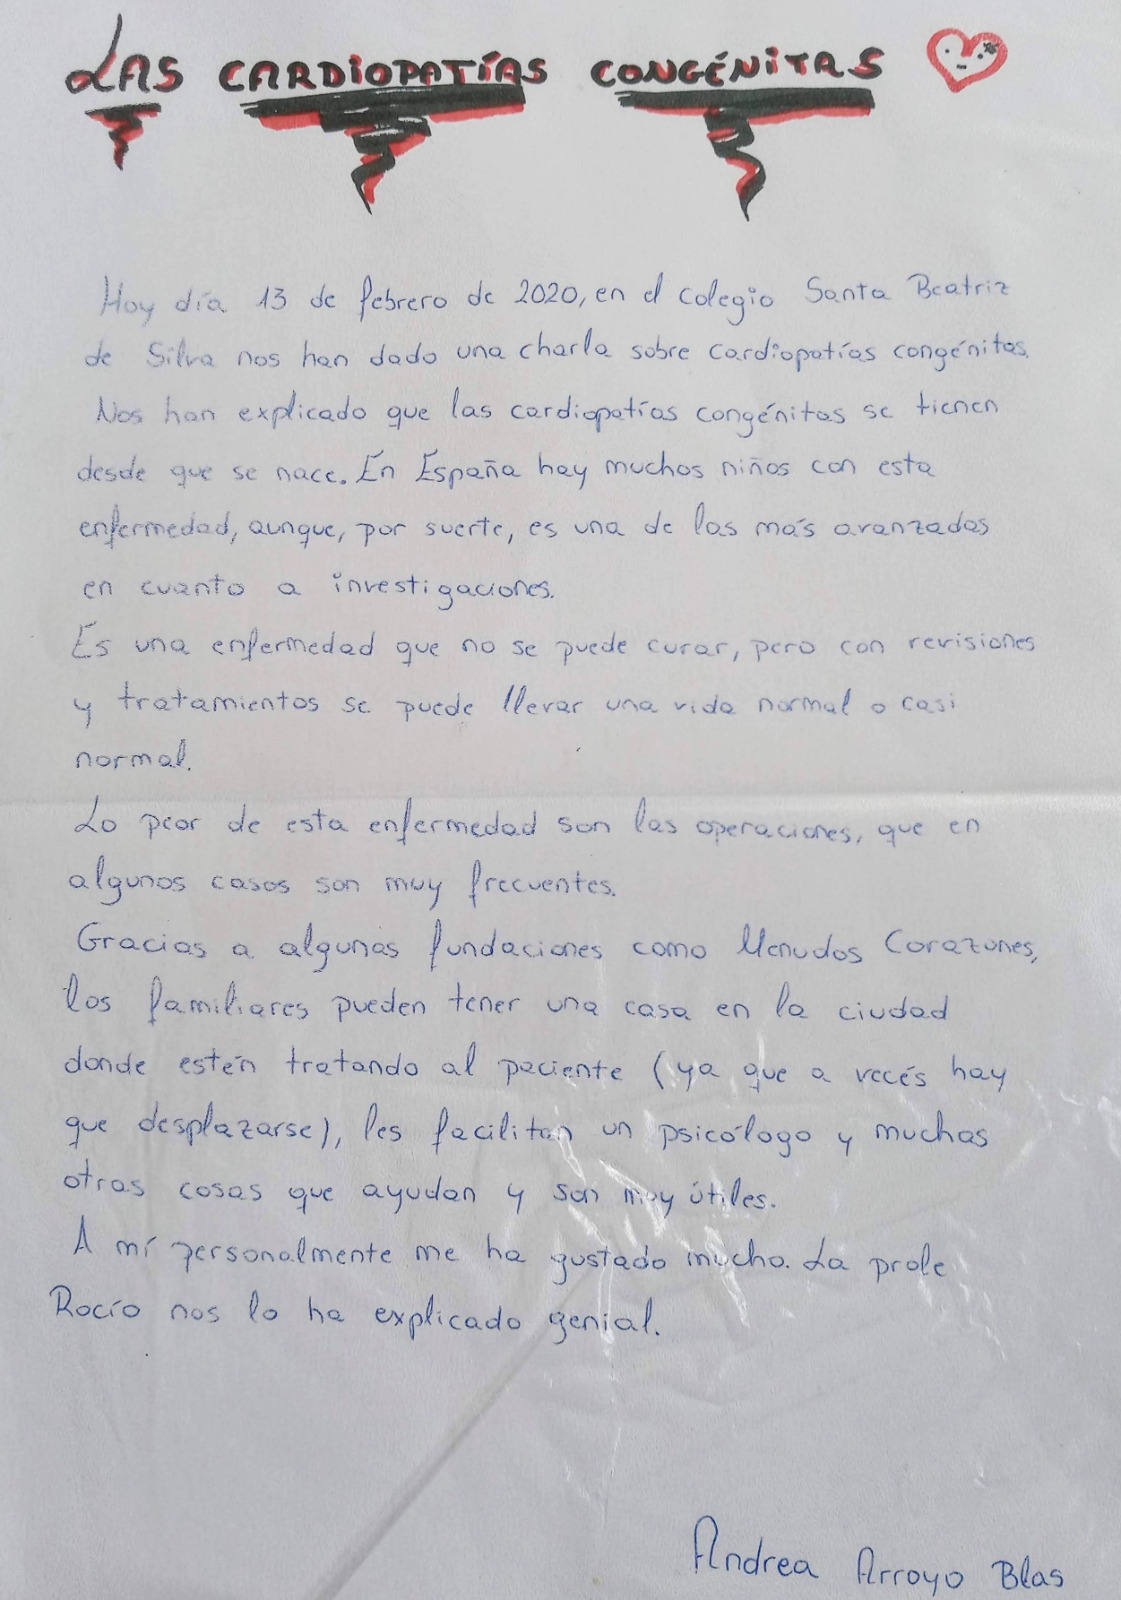 LAS CARDIOPATÍAS CONGÉNITAS
Hoy día 13 de febrero de 2020, en el colegio Santa Beatriz
de Silva nos han dado una charla sobre cardiopatías congénitas.
Nos han explicado que las cardiopatías congénitas se tienen
desde que se nace. En España hay muchos niños con esta
enfermedad, aunque, por suerte, es una de las más avanzadas
en cuanto a investigaciones.
Es una enfermedad que no se puede curar, pero con revisiones
y tratamientos se puede llevar una vida normal o casi
normal.
Lo peor de esta enfermedad son las operaciones, que en
algunos casos son muy frecuentes.
Gracias a algunas fundaciones como Menudos Corazones,
los familiares pueden tener una casa en la ciudad
donde estén tratando al paciente (ya que a vecés hay
que desplazarse), les facilitan un psicólogo y muchas
otras cosas que ayudan y son muy útiles.
A mí personalmente me ha gustado mucho. La profe
Rocío nos lo ha explicado genial.
Andrea Arroyo Blas